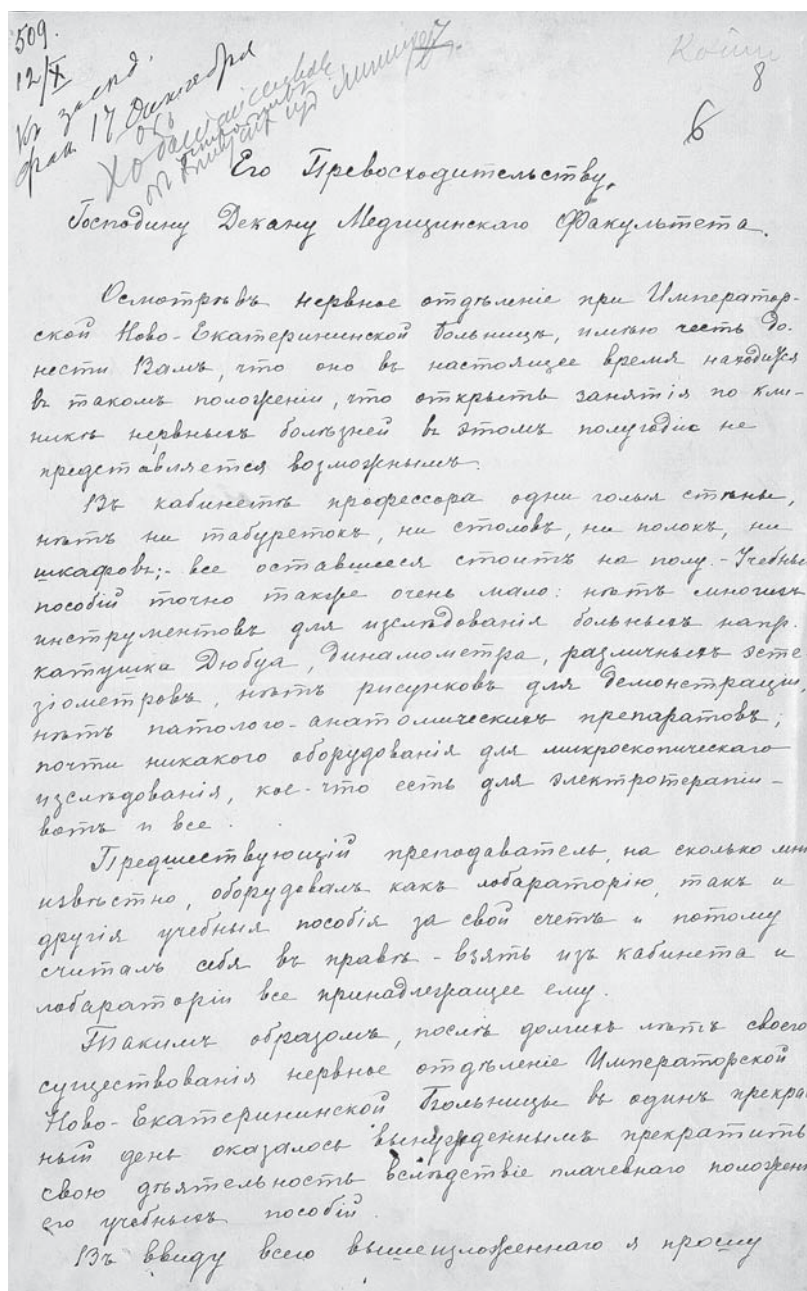 509.
12/X
Къ засѣд.
фак. 17 Октября
объ
Копiи
8
6
Его Превосходительству,
Господину Декану Медицинскаго Факультета.
Осмотрѣвъ нервное отдѣленiе при Император-
ской Ново-Екатерининской больницѣ, имѣю честь до-
нести Вамъ, что оно въ настоящее время находится
въ такомъ положенiи, что открыть занятiя по кли-
никѣ нервныхъ болѣзней въ этомъ полугодiи не
представляется возможнымъ.
Въ кабинетѣ профессора одни голыя стѣны,
нѣтъ ни табуретокъ, ни столовъ, ни полокъ, ни
шкафовъ;- все оставшееся стоитъ на полу. - Учебны
пособiй точно также очень мало: нѣтъ многихъ
инструментовъ для изслѣдованiя больныхъ напр.
катушка Дюбуа, динамометра, различныхъ эсте
зiометровъ, нѣтъ рисунковъ для демонстрацiи,
нѣтъ патолого-анатомическихъ препаратовъ;
почти никакого оборудованiя для микроскопическаго
изслѣдованiя, кое-что есть для электротерапiи -
вотъ и все.
Предшествующiй преподаватель, на сколько мнѣ
извѣстно, оборудовалъ какъ лобараторiю, такъ и
другiя учебныя пособiя за свой счетъ и потому
считалъ себя въ правѣ - взять изъ кабинета и
лобараторiи все принадлежащее ему.
Такимъ образомъ, послѣ долгихъ лѣтъ своего
существованiя нервное отдѣленiе Императорской
Ново-Екатерининской Больницы въ одинъ прекра
ный день оказалось вынужденнымъ прекратить
свою дѣятельность вслѣдствiе плачевнаго положен
его учебныхъ пособiй.
Въ ввиду всего вышеизложеннаго я прошу